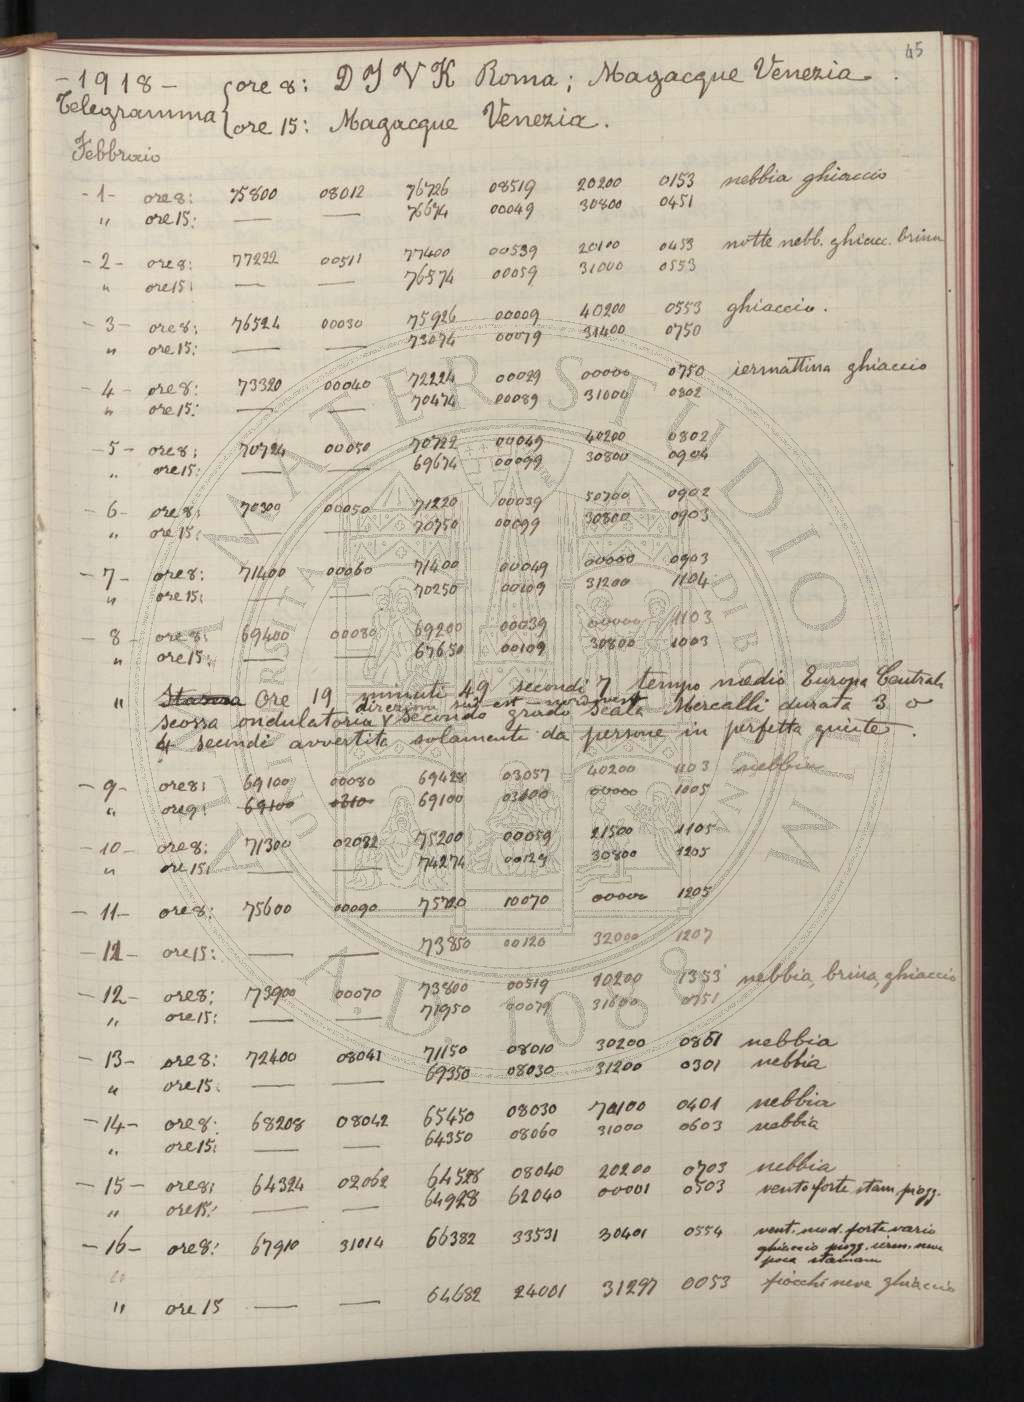 45
- 1918 - ore 8: D I V K Roma; Magacque Venezia.
Telegramma ore 15: Magacque Venezia.
Febbraio
- 1 - ore 8: 75800 08012 76726 08519 20200 0153 nebbia ghiaccio
" ore 15: — — 76674 00049 30800 0451
- 2 - ore 8: 77222 00511 77400 00539 20100 0453 notte nebb. ghiacc. brina
" ore 15: — — 76574 00059 31000 0553
- 3 - ore 8: 76524 00030 75926 00009 40200 0553 ghiaccio.
" ore 15: — — 73074 00079 31400 0750
- 4 - ore 8: 73320 00040 72224 00029 00000 0750 iermattina ghiaccio
" ore 15: — — 70474 00089 31000 0802
- 5 - ore 8: 70724 00050 70722 00049 40200 0802
" ore 15: — — 69674 00099 30800 0904
- 6 - ore 8: 70300 00050 71220 00039 50700 0902
" ore 15: — — 70750 00099 30800 0903
- 7 - ore 8: 71400 00060 71400 00049 00000 0903
" ore 15: — — 70250 00109 31200 1104
- 8 - ore 8: 69400 00080 69200 00039 00000 1103
" ore 15: — — 67650 00109 30800 1003
" Ore 19 minuti 49 secondi 7 tempo medio Europa Centrale
direzioni sud-est nord-ovest
scossa ondulatoria secondo grado scala Mercalli durata 3 o
4 secondi avvertita solamente da persone in perfetta quiete.
- 9 - ore 8: 69100 00080 69428 03057 40200 1103 nebbia
" ore 9: 69100 0810 69100 03600 00000 1005
- 10 - ore 8: 71300 02082 75200 00059 21500 1105
" ore 15: — — 74274 00129 30800 1205
- 11 - ore 8: 75600 00090 75720 10070 00000 1205
- 12 - ore 15: — — 73850 00120 32000 1207
- 12 - ore 8: 73900 00070 73800 00519 20200 1353 nebbia, brina, ghiaccio
" ore 15: — — 71950 00079 31600 0751
- 13 - ore 8: 72400 08041 71150 08010 30200 0861 nebbia
" ore 15: — — 69350 08030 31200 0301 nebbia
- 14 - ore 8: 68208 08042 65450 08030 70100 0401 nebbia
" ore 15: — — 64350 08060 31000 0603 nebbia
- 15 - ore 8: 64324 02062 64528 08040 20200 0703 nebbia
" ore 15: — — 64928 62040 00001 0503 vento forte stam. piogg.
- 16 - ore 8: 67910 31014 66382 33531 30401 0554 vent. mod. forte vario
ghiaccio piogg. iers. neve
poca stamane
" ore 15 — — 64682 24001 31297 0053 fiocchi neve ghiaccio
ALMA MATER STUDIORUM
A.D. 1088